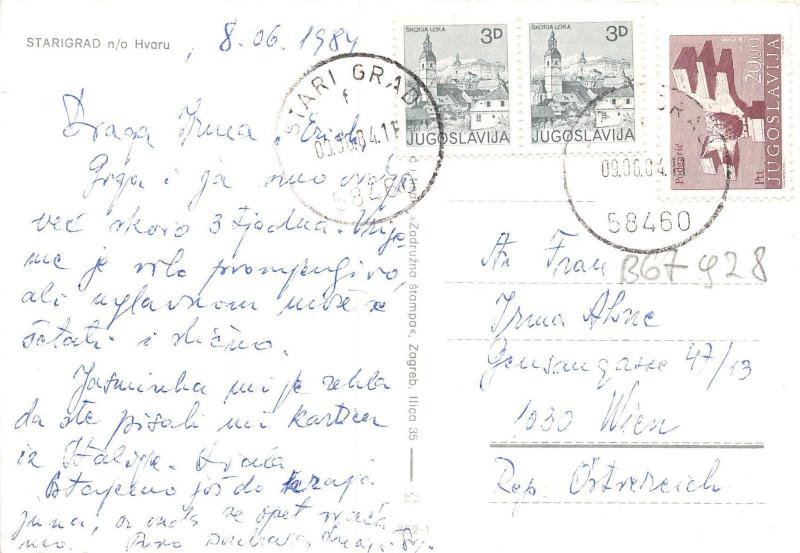 STARIGRAD n/o Hvaru
, 8.06.1984
ŠKOFJA LOKA 3D
JUGOSLAVIJA
ŠKOFJA LOKA 3D
JUGOSLAVIJA
20.00
JUGOSLAVIJA
Podgarić
Ptt
STARI GRAD
f
09.06.84.11
58460
09.06.84.11
58460
Draga Irma, Erich,
Grga i ja smo ovdje
već skoro 3 tjedna. Vrije
me je vrlo promjenjivo,
ali uglavnom može se
šetati i slično.
Jasminka mi je rekla
da ste pisali mi karticu
iz Italije. Hvala
Ostajemo još do kraja
juna, a onda se opet vraća
mo. Puno
"Zadružna štampa", Zagreb, Ilica 35
An Frau
B67928
Irma
47/13
1030 Wien
Rep. Österreich